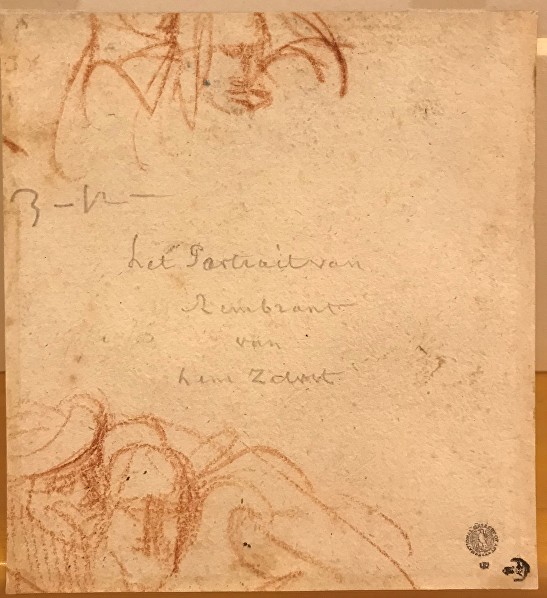 3-12-
het Portrait van
Rembrant
van
hem Zelvst